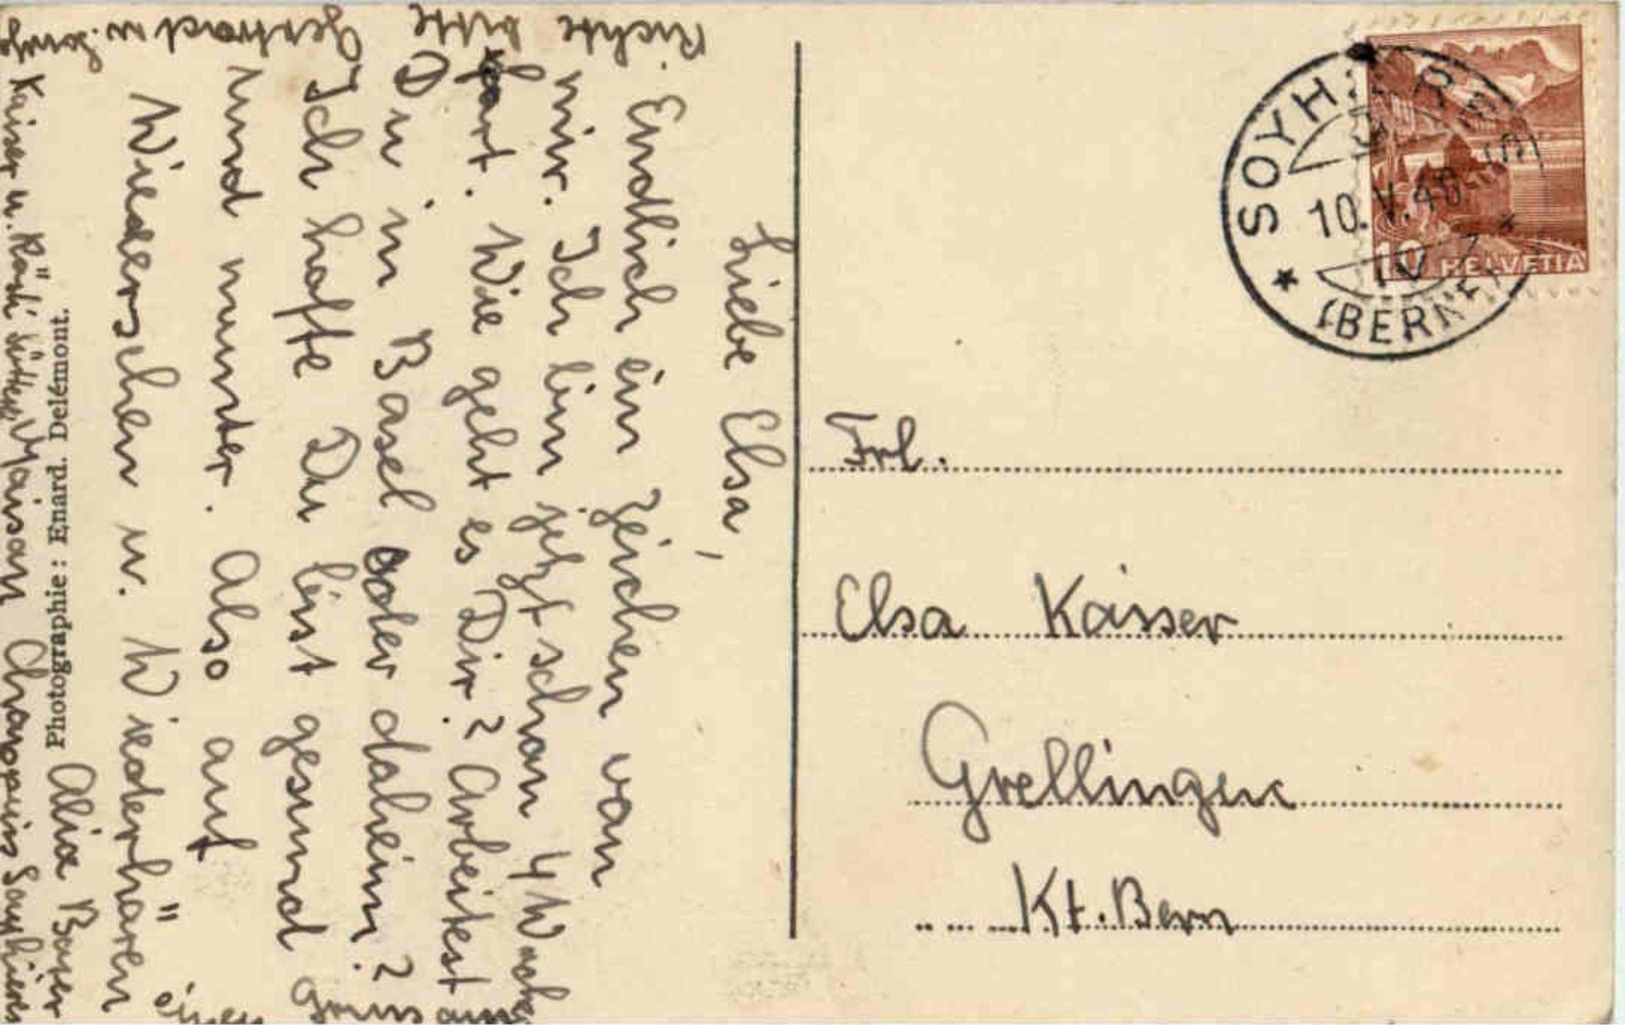 Liebe Elsa,
Endlich ein Zeichen von
mir. Ich bin jetzt schon 4 Wochen
fort. Wie geht es Dir? Arbeitest
Du in Basel oder daheim?
Ich hoffe Du bist gesund
und munter. Also auf
Wiedersehen u. Wiederhören
Alice
Kaiser u. Rösli Maison Soyhières
Richte bitte Gertrud u.
einen Gruss
Photographie: Enard. Delémont.
SOYHIÈRES
10.V.48
(BERNE)
10 HELVETIA
Frl.
Elsa Kaisser
Grellingen
Kt. Bern